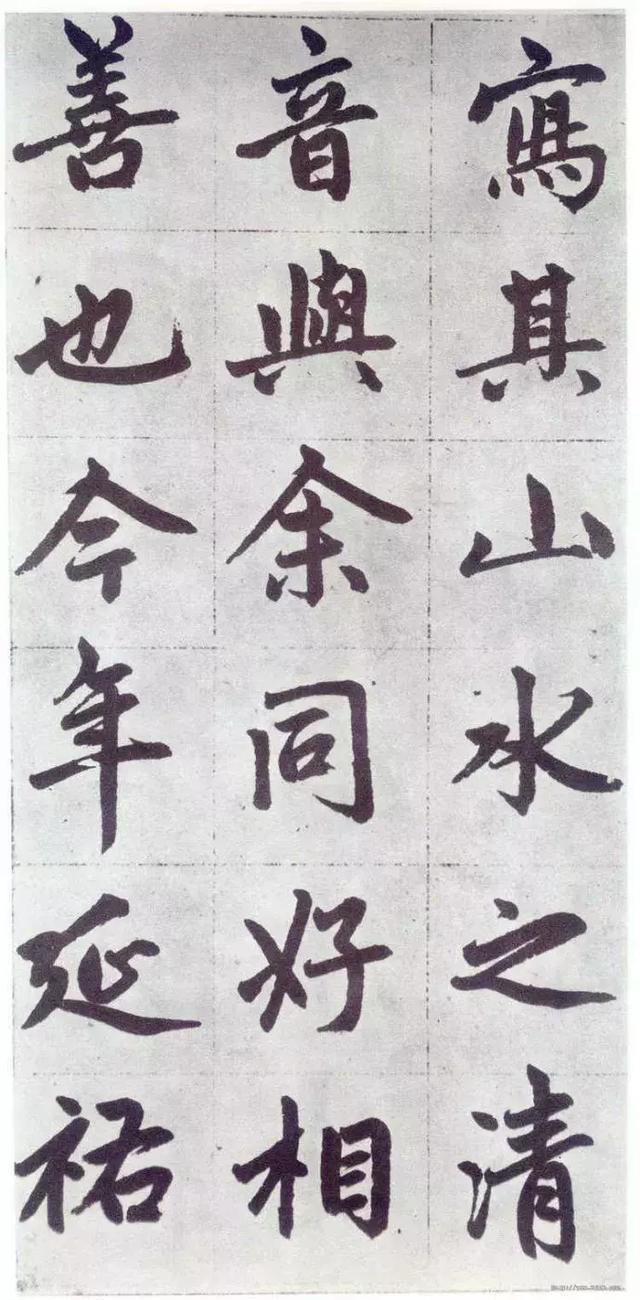 寫其山水之清
音與余同好相
善也今年延祐